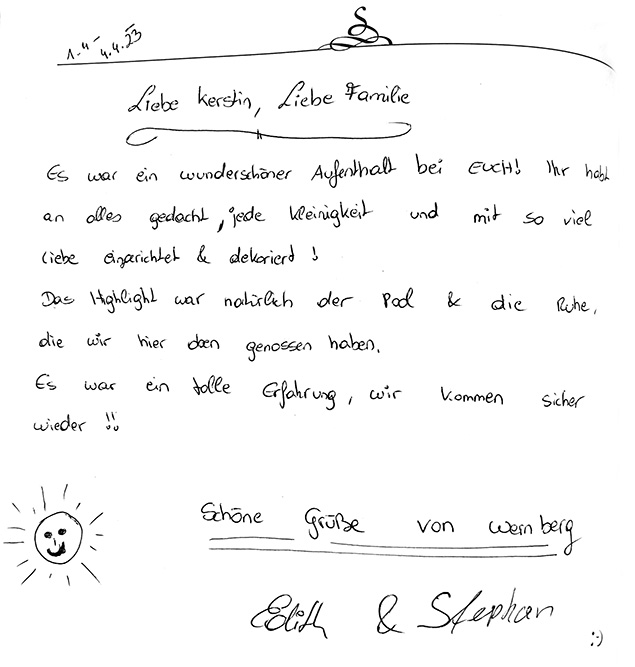 1.4 - 4.4.23
Liebe Kerstin, Liebe Familie
Es war ein wunderschöner Aufenthalt bei EUCH! Ihr habt
an alles gedacht, jede kleinigkeit und mit so viel
Liebe eingerichtet & dekoriert!
Das Highlight war natürlich der Pool & die Ruhe,
die wir hier oben genossen haben.
Es war ein tolle Erfahrung, wir kommen sicher
wieder !!
Schöne Grüße von Wernberg
Edith & Stephan
:-)